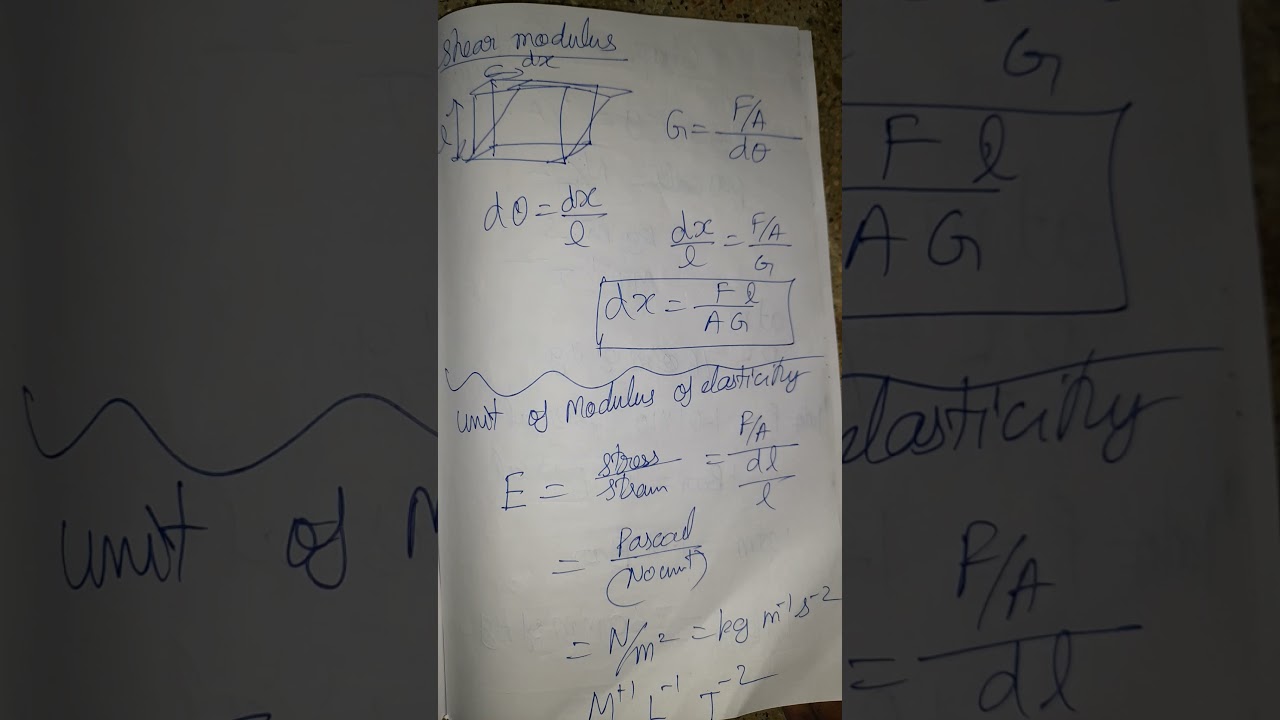 shear modulus
dx
l
G = F/A / dθ
dθ = dx / l
dx / l = F/A / G
dx = F l / A G
unit of Modulus of elasticity
E = stress / strain = F/A / dl / l
= Pascal / (No unit)
= N/m² = kg m⁻¹ s⁻²
M⁺¹ L⁻¹ T⁻²
G
F l
A G
elasticity
unit of M
F/A
= dl